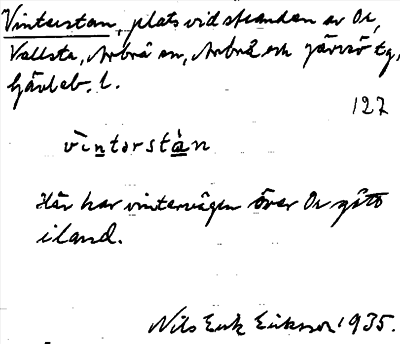 Vinterstan, plats vid stranden av On,
Vallsta, Arbrå sn, Arbrå och Järvsö tg,
Gävleb. l.
127
vìntərstàn
Här har vintervägen över On gått
iland.
Nils Erik Eriksson 1935.